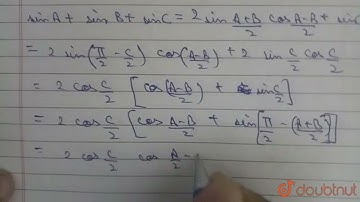 sinA + sin B + sinC = 2 sin (A+B)/2 cos (A-B)/2 + sin
= 2 sin(π/2 - C/2) cos(A-B/2) + 2 sin C/2 cos C/2
= 2 cos C/2 [cos(A-B/2) + sin C/2]
= 2 cos C/2 [cos (A-B)/2 + sin[π/2 - (A+B/2)]]
= 2 cos C/2 cos A/2 -
doubtnut